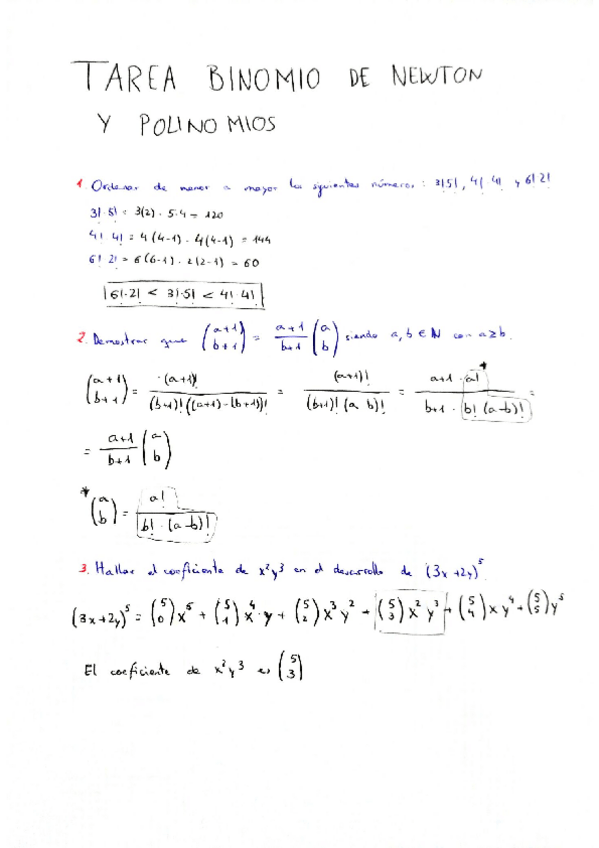 TAREA BINOMIO DE NEWTON
Y POLINOMIOS
1. Ordenar de menor a mayor los siguientes números: 3!5!, 4! 4! y 6! 2!
3!·5! = 3(2) · 5·4 = 120
4!·4! = 4(4-1) · 4(4-1) = 144
6!·2! = 6(6-1) · 2(2-1) = 60
6!·2! < 3!·5! < 4!·4!
2. Demostrar que (a+1 b+1) = a+1/b+1 (a b) siendo a, b ∈ N con a≥b.
(a+1 b+1) = (a+1)!/(b+1)!((a+1)-(b+1))! = (a+1)!/(b+1)!(a b)! = a+1 · a!/b+1 · b!(a-b)! * =
= a+1/b+1 (a b)
* (a b) = a!/b! · (a-b)!
3. Hallar el coeficiente de x²y³ en el desarrollo de (3x+2y)⁵.
(3x+2y)⁵ = (5 0)x⁵ + (5 1)x⁴·y + (5 2)x³y² + (5 3)x²y³ + (5 4)xy⁴ + (5 5)y⁵
El coeficiente de x²y³ es (5 3)